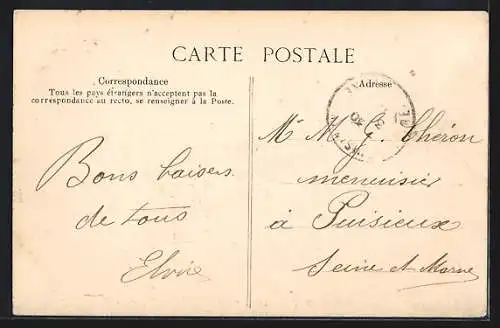 CARTE POSTALE
Correspondance
Tous les pays étrangers n'acceptent pas la
correspondance au recto, se renseigner à la Poste.
Adresse
Bons baisers
de tous
Elvire
Mr M. G. Théron
menuisier
à Puisieux
Seine et Marne